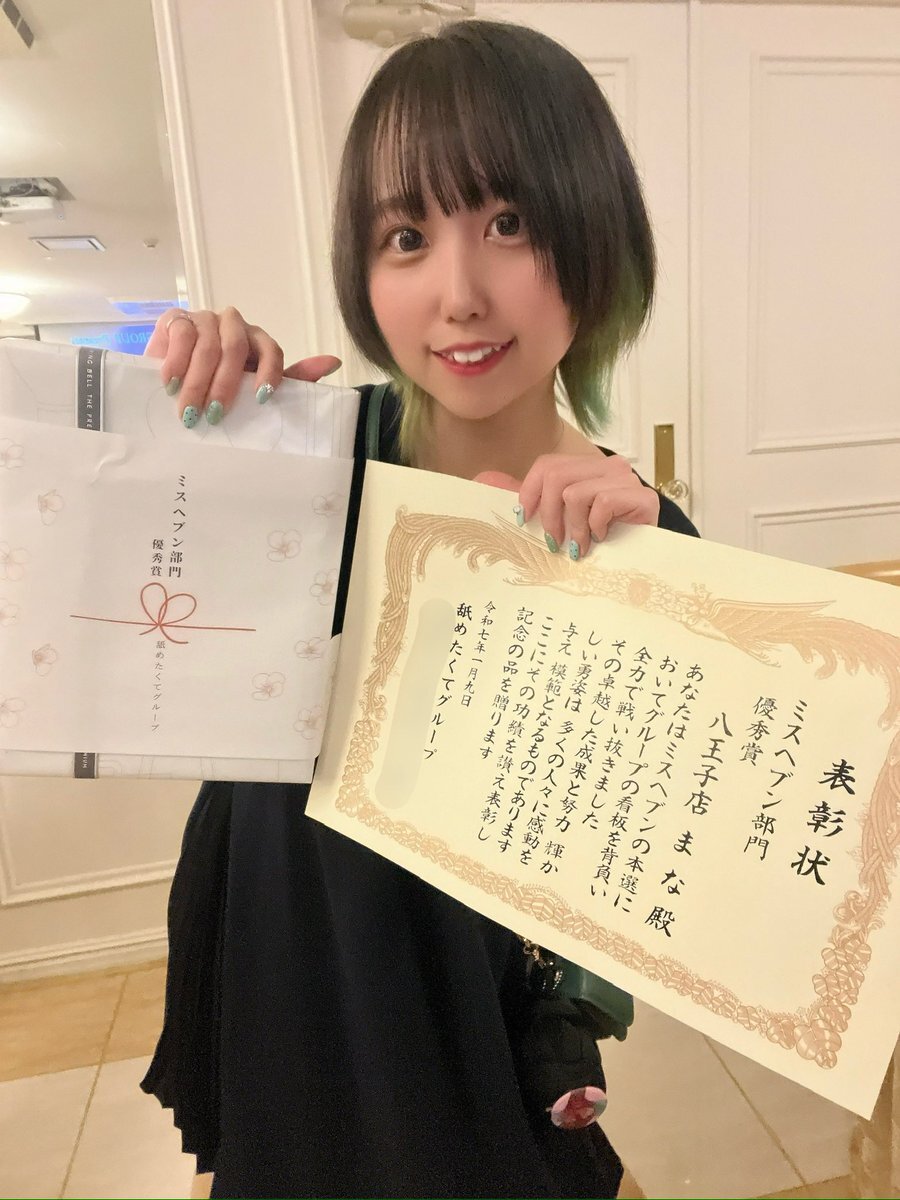 表彰状
ミスヘブン部門
優秀賞
八王子店 まな 殿
あなたはミスヘブンの本選に
おいてグループの看板を背負い
全力で戦い抜きました
その卓越した成果と努力 輝か
しい勇姿は 多くの人々に感動を
与え 模範となるものであります
ここにその功績を讃え表彰し
記念の品を贈ります
令和七年一月九日
舐めたくてグループ
ミスヘブン部門
優秀賞
舐めたくてグループ
BELL THE FRE